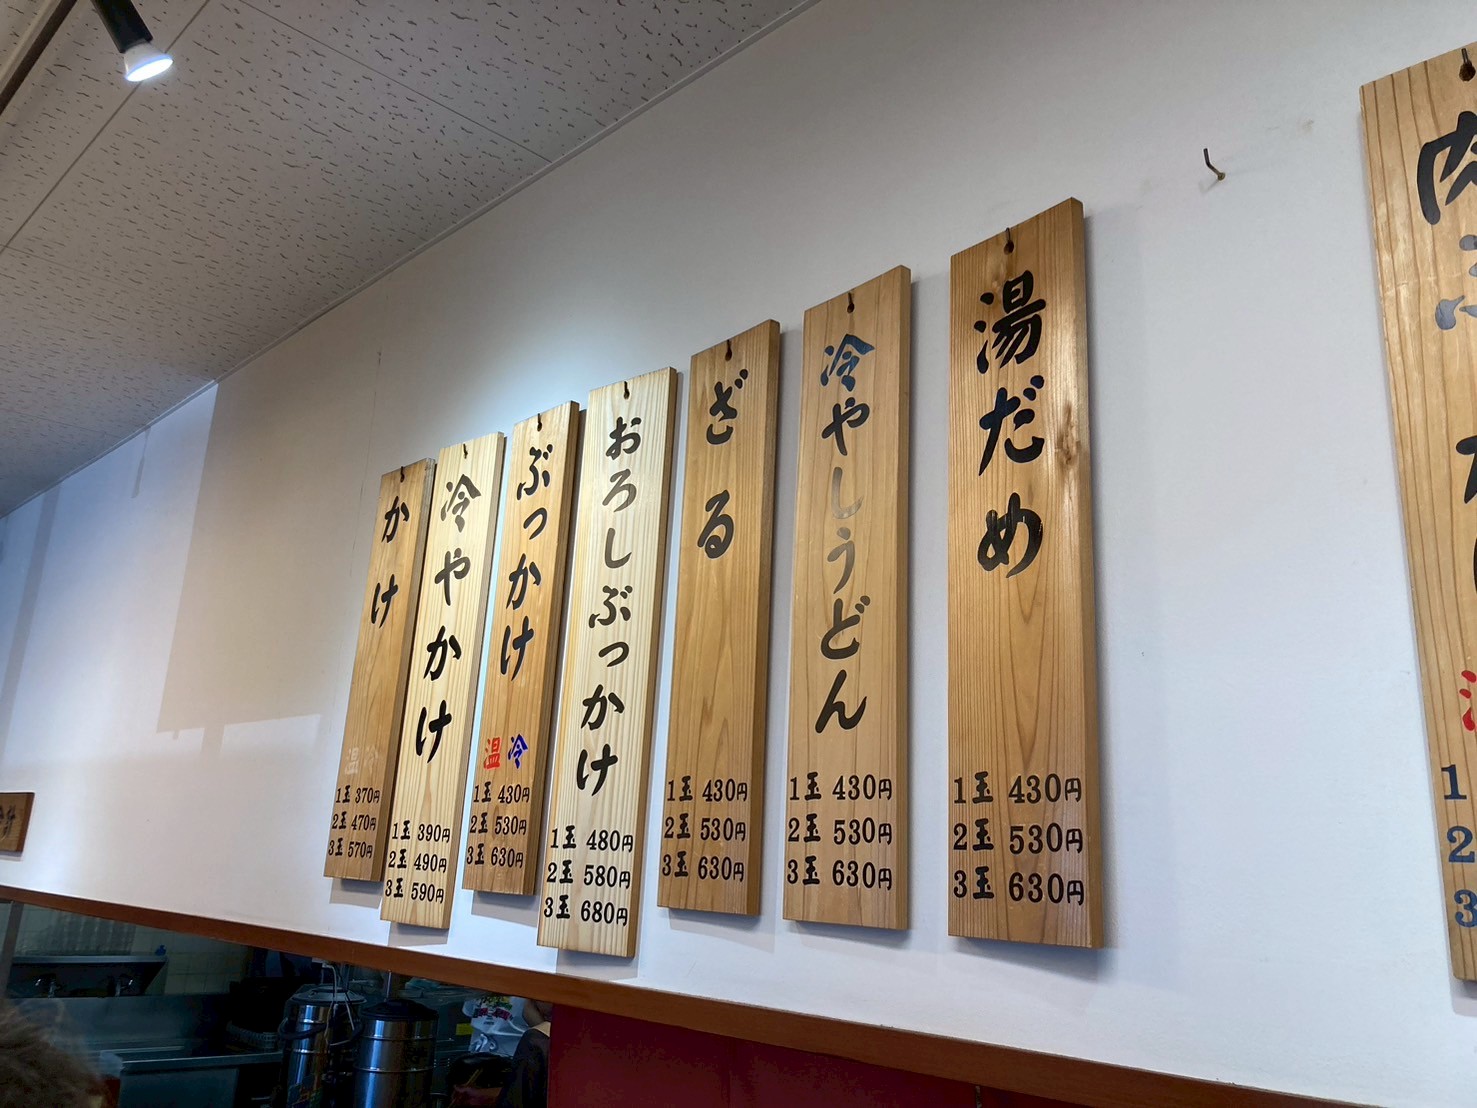 かけ
温 冷
1玉 370円
2玉 470円
3玉 570円
冷やかけ
1玉 390円
2玉 490円
3玉 590円
ぶっかけ
温 冷
1玉 430円
2玉 530円
3玉 630円
おろしぶっかけ
1玉 480円
2玉 580円
3玉 680円
ざる
1玉 430円
2玉 530円
3玉 630円
冷やしうどん
1玉 430円
2玉 530円
3玉 630円
湯だめ
1玉 430円
2玉 530円
3玉 630円
肉
1
2
3